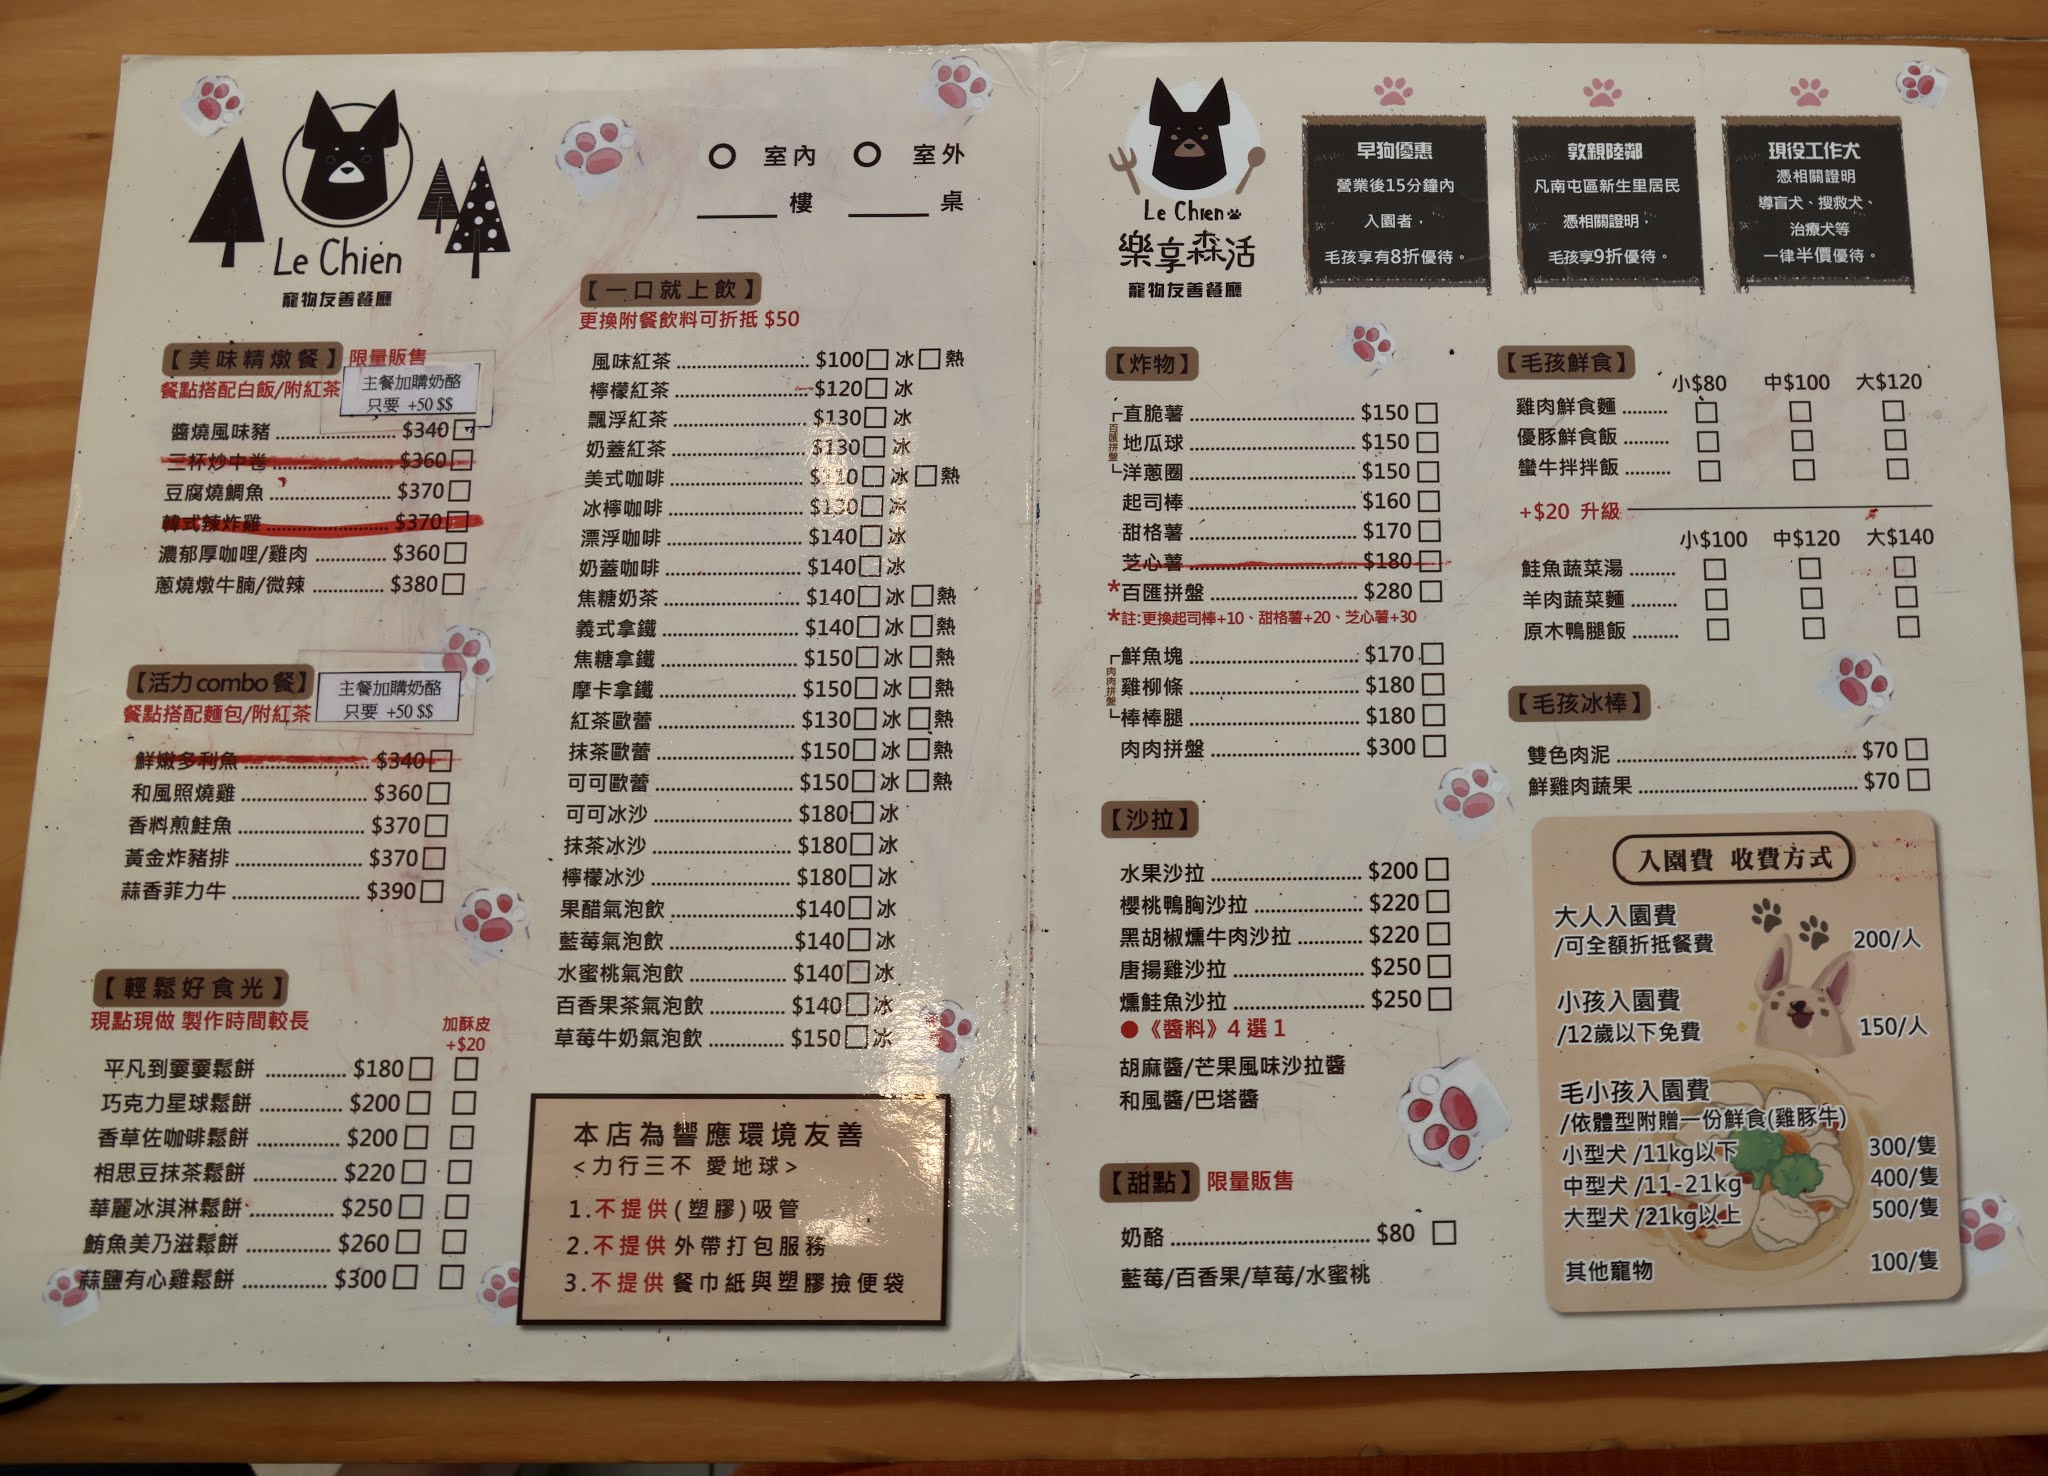 Le Chien
寵物友善餐廳
室內 室外
樓 桌
【美味精燉餐】限量販售
餐點搭配白飯/附紅茶
主餐加購奶酪
只要 +50 $$
醬燒風味豬 $340
三杯炒中卷 $360
豆腐燒鯛魚 $370
韓式辣炸雞 $370
濃郁厚咖哩/雞肉 $360
蔥燒燉牛腩/微辣 $380
【活力combo餐】
餐點搭配麵包/附紅茶
主餐加購奶酪
只要 +50 $$
鮮嫩多利魚 $340
和風照燒雞 $360
香料煎鮭魚 $370
黃金炸豬排 $370
蒜香菲力牛 $390
【輕鬆好食光】
現點現做 製作時間較長
加酥皮
+$20
平凡到嫑嫑鬆餅 $180
巧克力星球鬆餅 $200
香草佐咖啡鬆餅 $200
相思豆抹茶鬆餅 $220
華麗冰淇淋鬆餅 $250
鮪魚美乃滋鬆餅 $260
蒜鹽有心雞鬆餅 $300
【一口就上飲】
更換附餐飲料可折抵 $50
風味紅茶 $100 冰 熱
檸檬紅茶 $120 冰
飄浮紅茶 $130 冰
奶蓋紅茶 $130 冰
美式咖啡 $110 冰 熱
冰檸咖啡 $130 冰
漂浮咖啡 $140 冰
奶蓋咖啡 $140 冰
焦糖奶茶 $140 冰 熱
義式拿鐵 $140 冰 熱
焦糖拿鐵 $150 冰 熱
摩卡拿鐵 $150 冰 熱
紅茶歐蕾 $130 冰 熱
抹茶歐蕾 $150 冰 熱
可可歐蕾 $150 冰 熱
可可冰沙 $180 冰
抹茶冰沙 $180 冰
檸檬冰沙 $180 冰
果醋氣泡飲 $140 冰
藍莓氣泡飲 $140 冰
水蜜桃氣泡飲 $140 冰
百香果茶氣泡飲 $140 冰
草莓牛奶氣泡飲 $150 冰
本店為響應環境友善
<力行三不 愛地球>
1.不提供(塑膠)吸管
2.不提供外帶打包服務
3.不提供餐巾紙與塑膠撿便袋
Le Chien
樂享森活
寵物友善餐廳
早狗優惠
營業後15分鐘內
入園者，
毛孩享有8折優待。
敦親陸鄰
凡南屯區新生里居民
憑相關證明，
毛孩享9折優待。
現役工作犬
憑相關證明
導盲犬、搜救犬、
治療犬等
一律半價優待。
【炸物】
百匯拼盤
直脆薯 $150
地瓜球 $150
洋蔥圈 $150
起司棒 $160
甜格薯 $170
芝心薯 $180
*百匯拼盤 $280
*註:更換起司棒+10、甜格薯+20、芝心薯+30
肉肉拼盤
鮮魚塊 $170
雞柳條 $180
棒棒腿 $180
肉肉拼盤 $300
【沙拉】
水果沙拉 $200
櫻桃鴨胸沙拉 $220
黑胡椒燻牛肉沙拉 $220
唐揚雞沙拉 $250
燻鮭魚沙拉 $250
●《醬料》4選1
胡麻醬/芒果風味沙拉醬
和風醬/巴塔醬
【甜點】限量販售
奶酪 $80
藍莓/百香果/草莓/水蜜桃
【毛孩鮮食】
小$80 中$100 大$120
雞肉鮮食麵
優豚鮮食飯
蠻牛拌拌飯
+$20 升級
小$100 中$120 大$140
鮭魚蔬菜湯
羊肉蔬菜麵
原木鴨腿飯
【毛孩冰棒】
雙色肉泥 $70
鮮雞肉蔬果 $70
入園費 收費方式
大人入園費
/可全額折抵餐費 200/人
小孩入園費
/12歲以下免費 150/人
毛小孩入園費
/依體型附贈一份鮮食(雞豚牛)
小型犬/11kg以下 300/隻
中型犬/11-21kg 400/隻
大型犬/21kg以上 500/隻
其他寵物 100/隻